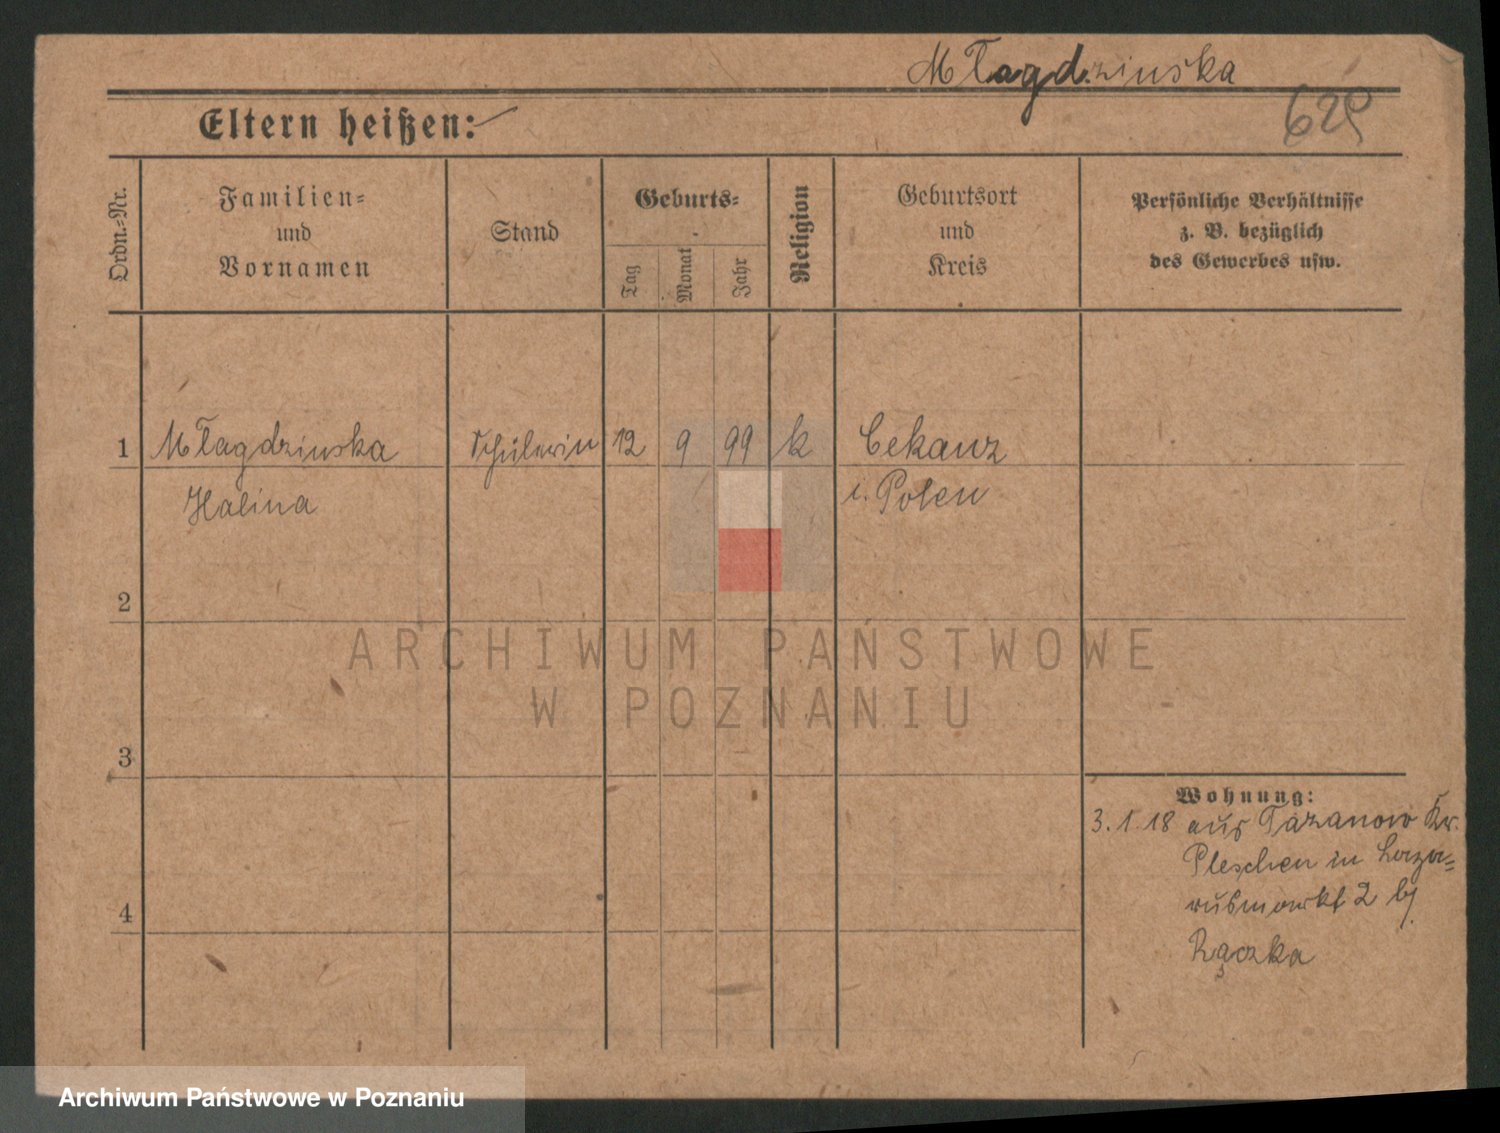 Młagdzinska
629
Eltern heißen:
Ordn.-Nr.
Familien-
und
Vornamen
Stand
Geburts-
Tag
Monat
Jahr
Religion
Geburtsort
und
Kreis
Persönliche Verhältnisse
z. B. bezüglich
des Gewerbes usw.
1 Młagdzinska Schülerin 12 9 99 k Cekanz
Halina i. Polen
2
ARCHIWUM PAŃSTWOWE
W POZNANIU
3
Wohnung:
3.1.18 aus Tazanow Kr.
Pleschen in Laza=
rusmarkt 2 bj.
4
Rączka
Archiwum Państwowe w Poznaniu